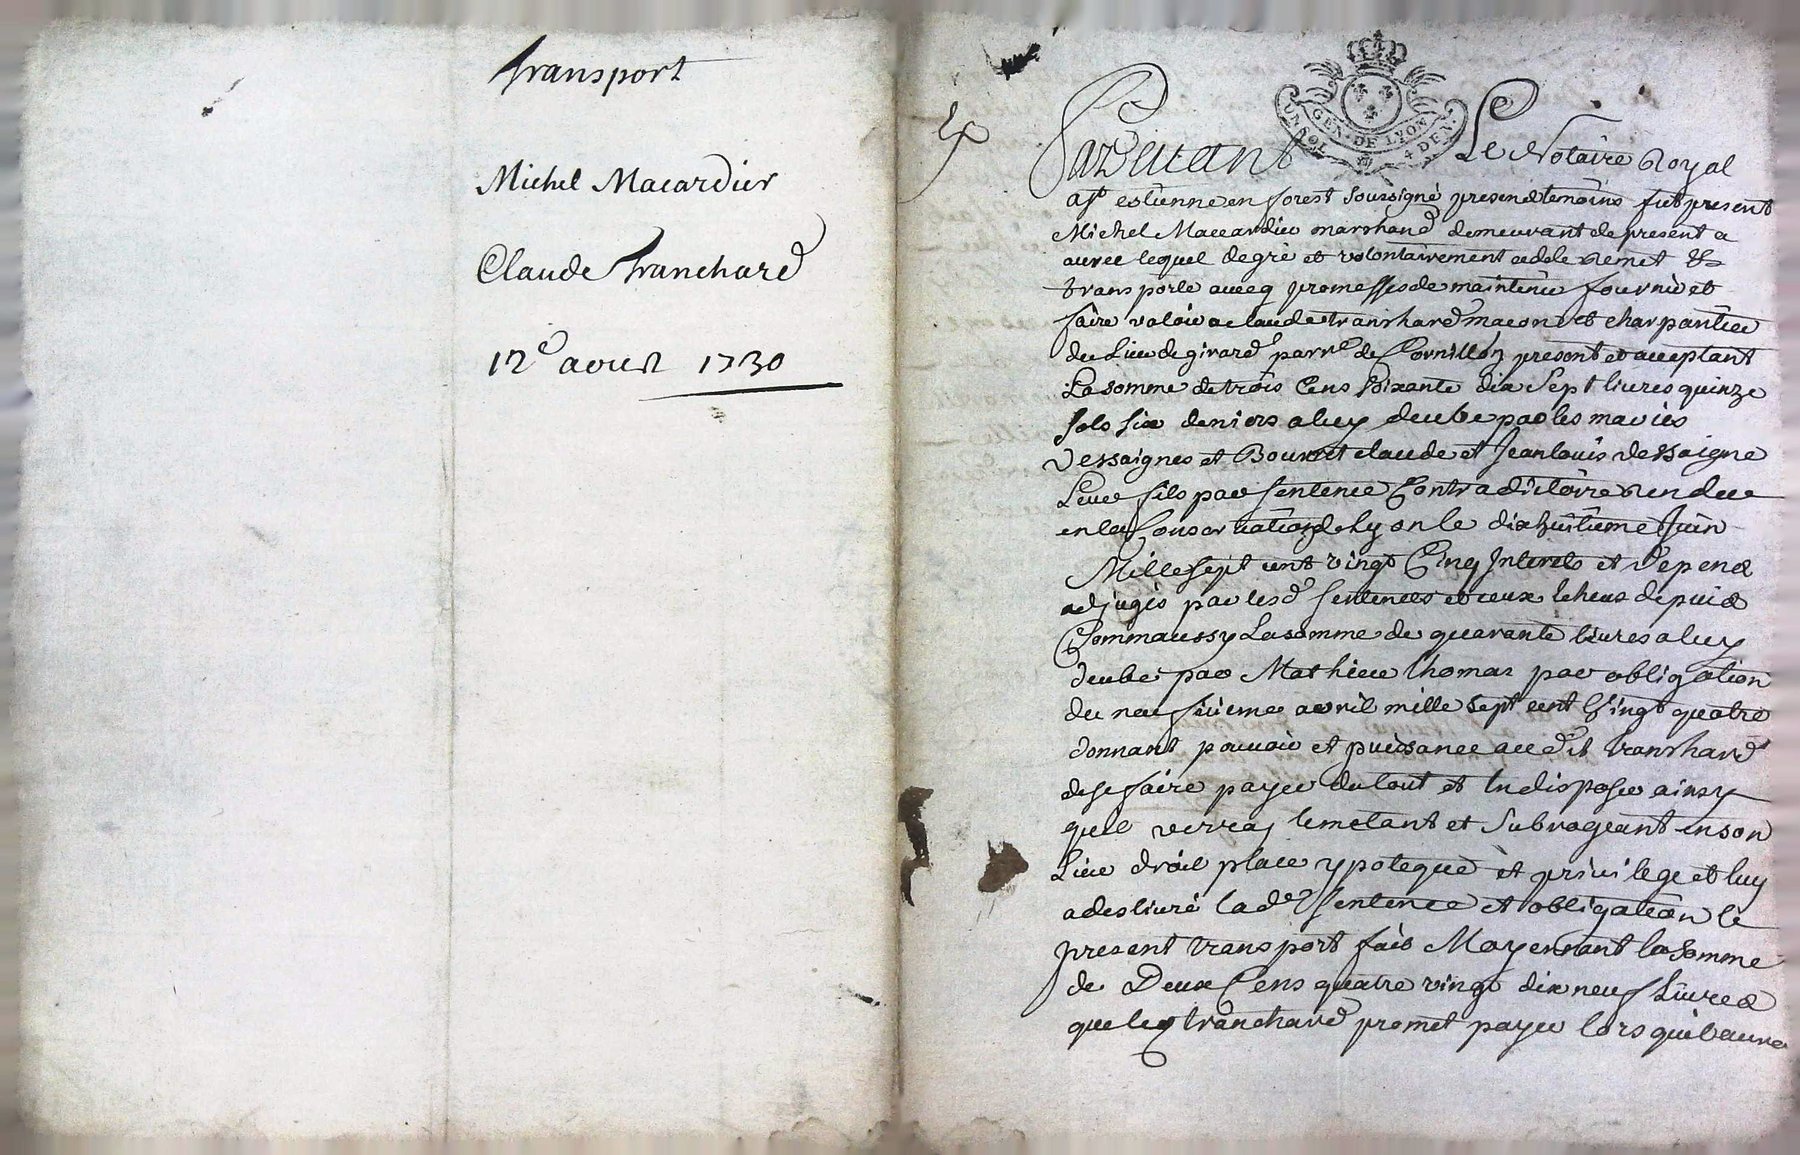 Transport
Michel Macardier
Claude Tranchard
12e avril 1730
GEN. DE LYON
UN SOL 4 DEN.
Pardevant Le Notaire Royal
a St estienne en forest soussigné presend temoins fut present
Michel Macardier marchand demeurant de present a
auree lequel de gré et volontairement cedde remet &
transporte avecq promesses de maintenir fournir et
faire valoir a claude transhard macon et charpantier
du Lieu de girard parr.e de Cornillon present et acceptant
La somme de trois Cens soixante dix sept livres quinze
sols six deniers a luy deube par les mariés
Dessaignes et Bouret claude et Jean louis dessaigne
Leur fils par sentence Contradictoire rendue
en la Conservation de Lyon le dix huitieme Juin
Mille sept cent vingt Cinq Interets et depend
adjugés par lesd sentences et ceux Echeus depuis
Comm aussy La somme de quarante livres a luy
deube par Mathieu thomas par obligation
du neufvieme avril mille sept cent vingt quatre
donnant pouvoir et puissance audit transhard
de se faire payer du tout et En disposer ainsy
quil verra, Le metant et Subrogeant en son
Lieu droit place ypoteque et privilege et luy
a deslivré lad.e sentence et obligation le
present transport fait Moyennant la somme
de Deux Cens quatre vingt dix neuf Livres
que led tranchard promet payer lors quil aura